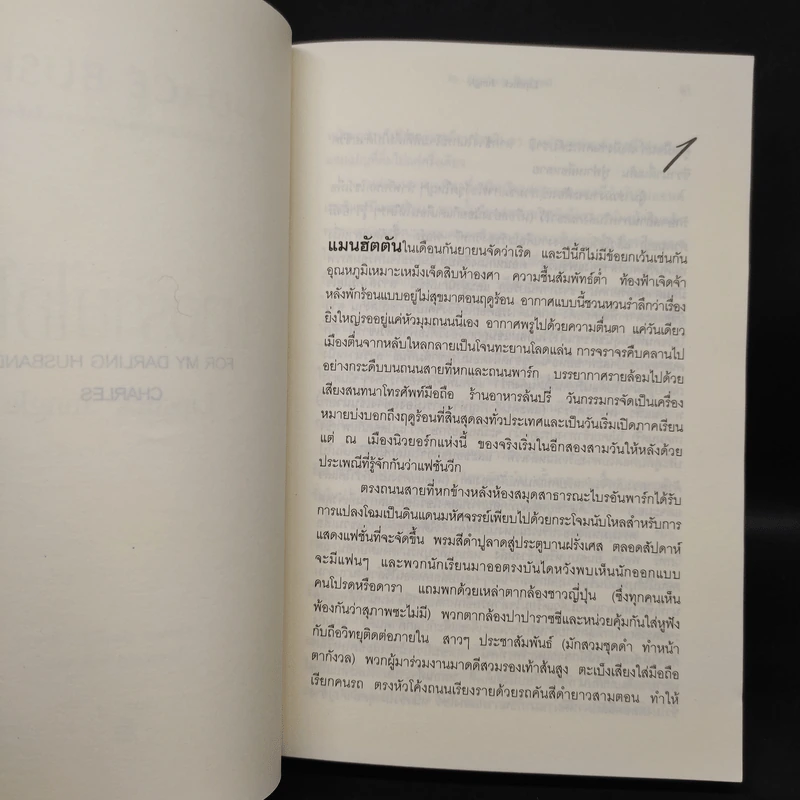 FOR MY DARLING HUSBAND
CHARLES
1
แมนฮัตตันในเดือนกันยายนจัดว่าเริด และปีนี้ก็ไม่มีข้อยกเว้นเช่นกัน
อุณหภูมิเหมาะเหม็งเจ็ดสิบห้าองศา ความชื้นสัมพัทธ์ต่ำ ท้องฟ้าเจิดจ้า
หลังพักร้อนแบบอยู่ไม่สุขมาตอนฤดูร้อน อากาศแบบนี้ชวนหวนรำลึกว่าเรื่อง
ยิ่งใหญ่รออยู่แค่หัวมุมถนนนี่เอง อากาศพรูไปด้วยความตื่นตา แค่วันเดียว
เมืองตื่นจากหลับใหลกลายเป็นโจนทะยานโลดแล่น การจราจรคืบคลานไป
อย่างกระดืบบนถนนสายที่หกและถนนพาร์ก บรรยากาศรายล้อมไปด้วย
เสียงสนทนาโทรศัพท์มือถือ ร้านอาหารล้นปรี่ วันกรรมกรจัดเป็นเครื่อง
หมายบ่งบอกถึงฤดูร้อนที่สิ้นสุดลงทั่วประเทศและเป็นวันเริ่มเปิดภาคเรียน
แต่ ณ เมืองนิวยอร์กแห่งนี้ ของจริงเริ่มในอีกสองสามวันให้หลังด้วย
ประเพณีที่รู้จักกันว่าแฟชั่นวีก
ตรงถนนสายที่หกข้างหลังห้องสมุดสาธารณะไบรอันพาร์กได้รับ
การแปลงโฉมเป็นดินแดนมหัศจรรย์เพียบไปด้วยกระโจมนับโหลสำหรับการ
แสดงแฟชั่นที่จะจัดขึ้น พรมสีดำปูลาดสู่ประตูบานฝรั่งเศส ตลอดสัปดาห์
จะมีแฟนๆ และพวกนักเรียนมาออตรงบันไดหวังพบเห็นนักออกแบบ
คนโปรดหรือดารา แถมพกด้วยเหล่าตากล้องชาวญี่ปุ่น (ซึ่งทุกคนเห็น
พ้องกันว่าสุภาพซะไม่มี) พวกตากล้องปาปาราซซีและหน่วยคุ้มกันใส่หูฟัง
กับถือวิทยุติดต่อภายใน สาวๆ ประชาสัมพันธ์ (มักสวมชุดดำ ทำหน้า
ตากังวล) พวกผู้มาร่วมงานมาดดีสวมรองเท้าส้นสูง ตะเบ็งเสียงใส่มือถือ
เรียกคนรถ ตรงหัวโค้งถนนเรียงรายด้วยรถคันสีดำยาวสามตอน ทำให้